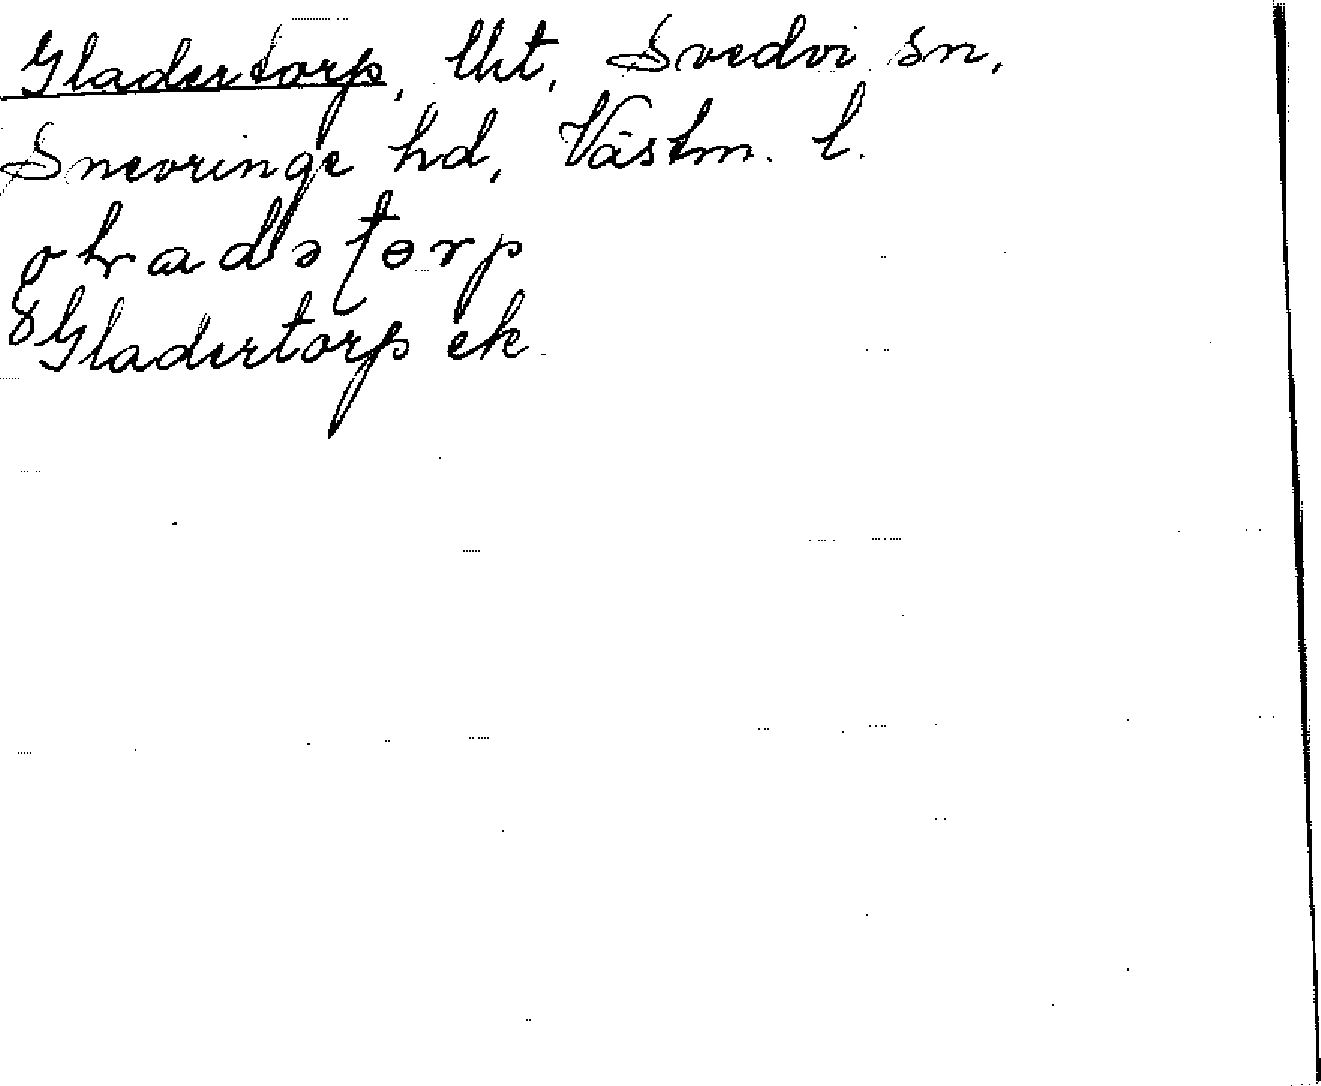 Gladertorp, lht, Svedvi sn,
Snevringe hd, Västm. l.
Gladertorp ek